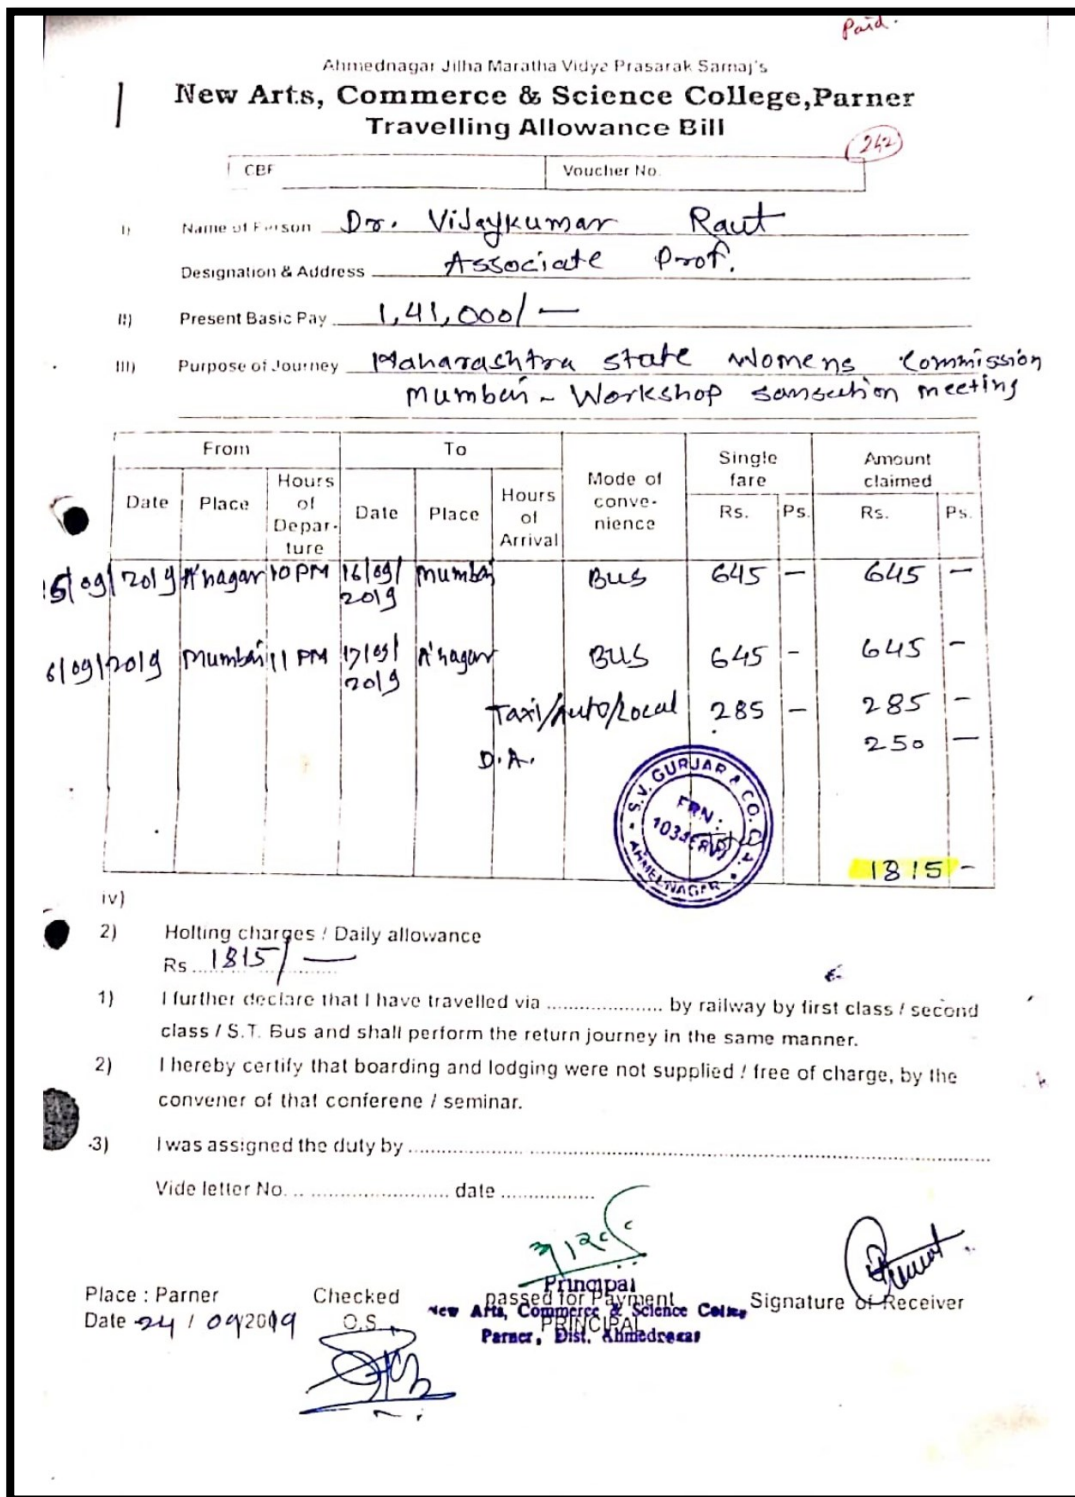 Paid.
Ahmednagar Jilha Maratha Vidya Prasarak Samaj's
New Arts, Commerce & Science College, Parner
Travelling Allowance Bill
242
CBF Voucher No.
I) Name of Person Dr. Vijaykumar Raut
Designation & Address Associate Prof.
II) Present Basic Pay 1,41,000/-
III) Purpose of Journey Maharashtra state womens Commission
Mumbai - Workshop sansection meeting
From To Mode of convenience Single fare Amount claimed
Date Place Hours of Depar-ture Date Place Hours of Arrival Rs. Ps. Rs. Ps.
15/09/2019 A'nagar 10 PM 16/09/2019 Mumbai BUS 645 - 645 -
6/09/2019 Mumbai 11 PM 17/09/2019 A'nagar BUS 645 - 645 -
Taxi/Auto/Local 285 - 285 -
D.A. 250 -
S.V. GURJAR & CO. C.A.
FRN:
AHMEDNAGAR
1815 -
iv)
2) Holting charges / Daily allowance
Rs. 1815/-
1) I further declare that I have travelled via .................... by railway by first class / second
class / S.T. Bus and shall perform the return journey in the same manner.
2) I hereby certify that boarding and lodging were not supplied / free of charge, by the
convener of that conferene / seminar.
3) I was assigned the duty by ....................
Vide letter No. .................... date ................
Place : Parner Checked passed for Payment Signature of Receiver
Date 24 / 09 2019 O.S. PRINCIPAL
Principal
New Arts, Commerce & Science College
Parner, Dist. Ahmednagar